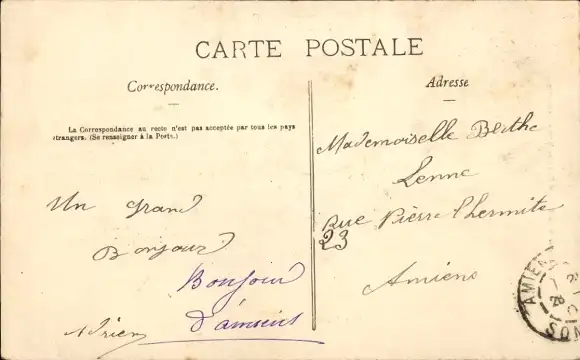 CARTE POSTALE
Correspondance.
La Correspondance au recto n'est pas acceptée par tous les pays
étrangers. (Se renseigner à la Poste.)
Un grand
Bonjour
Bonjour
d'amiens
Adrien
Adresse
Mademoiselle Berthe
Lenne
Rue Pierre l'hermite
23
Amiens
AMIENS